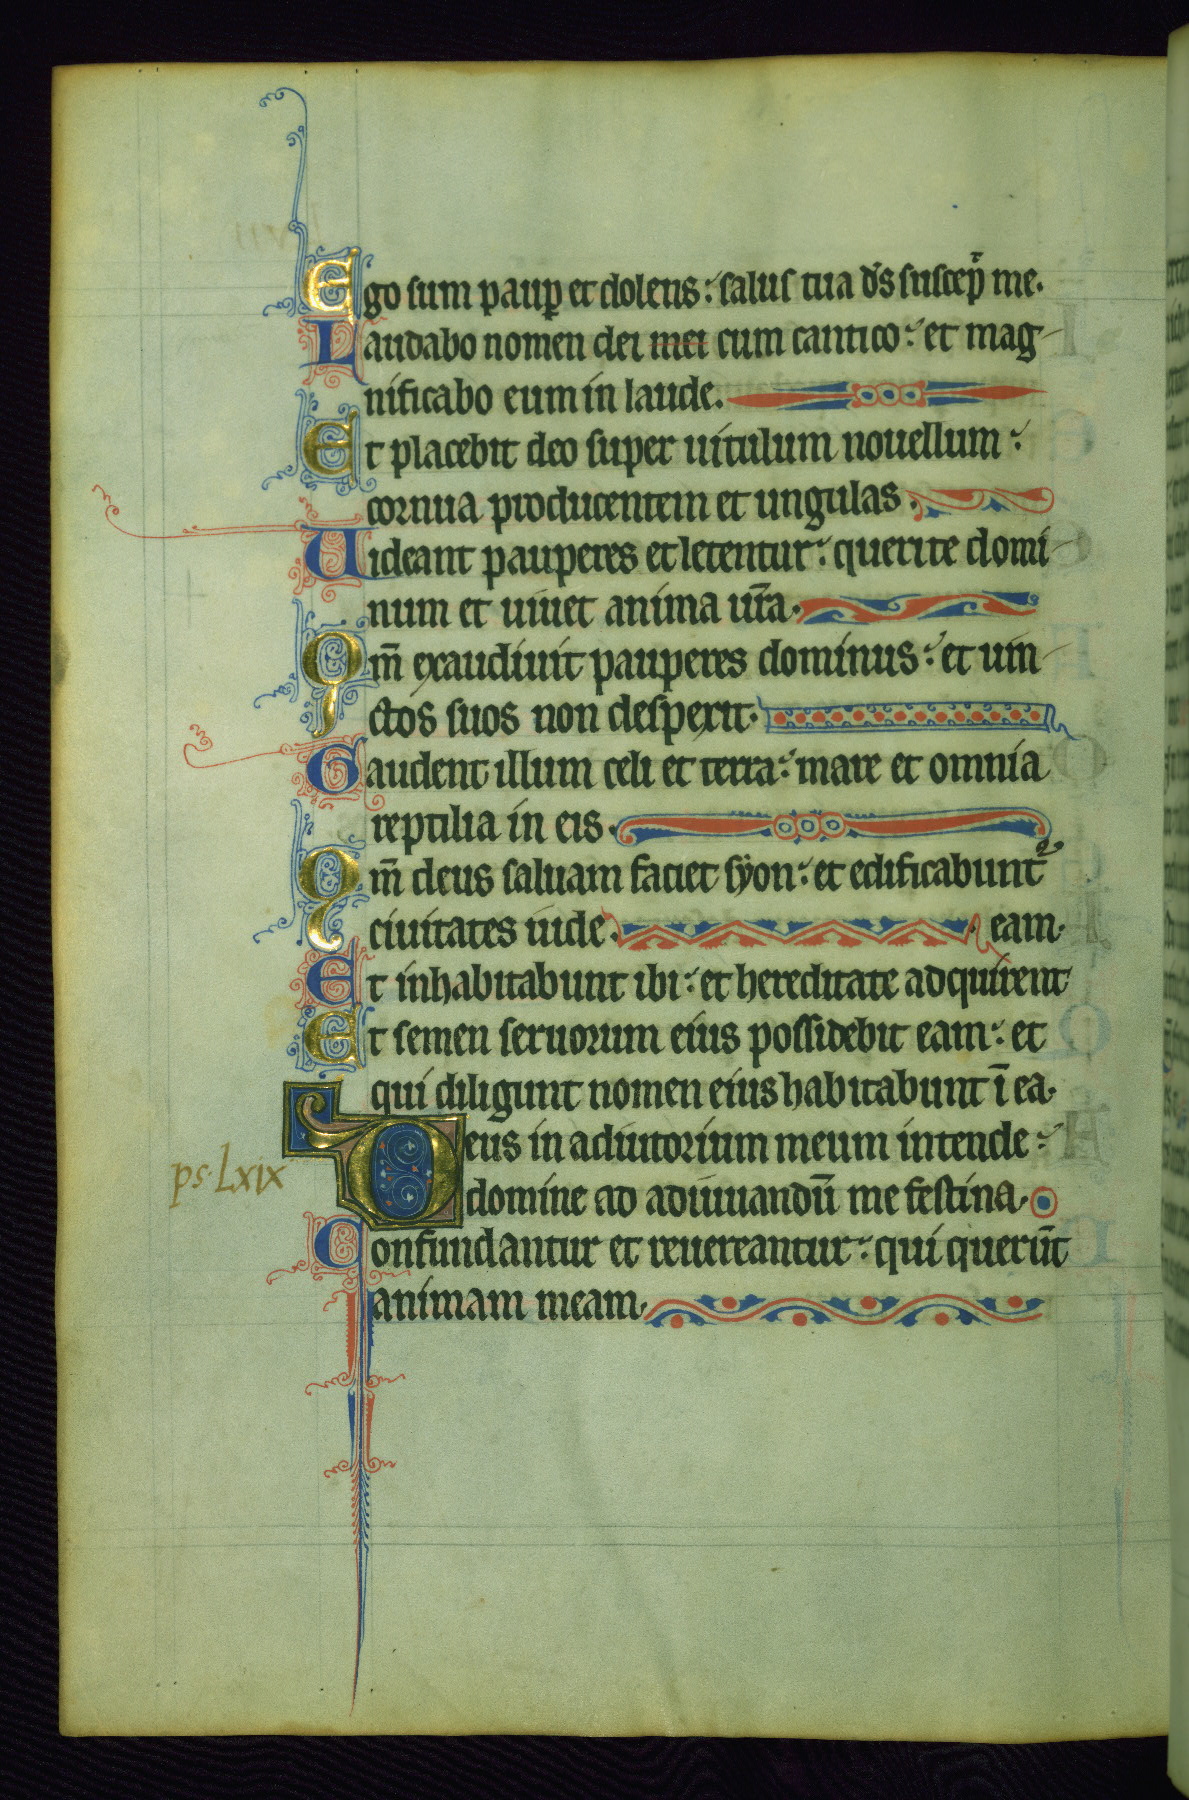 Ego sum paup̲ et dolens: salus tua ds̄ suscep̄ me.
Laudabo nomen dei mei cum cantico: et mag
nificabo eum in laude.
Et placebit deo super uitulum nouellum:
cornua producentem et ungulas.
Uideant pauperes et letentur: querite domi
num et uiuet anima ur̄a.
Qm̄ exaudiuit pauperes dominus: et uin
ctos suos non despexit.
Gaudent illum celi et terra: mare et omnia
reptilia in eis.
Qm̄ deus saluam faciet syon: et edificabunt᷑
ciuitates iude. eam.
Et inhabitabunt ibi: et hereditate adquirent
Et semen seruorum eius possidebit eam: et
qui diligunt nomen eius habitabunt ī ea.
Deus in adiutorium meum intende:
ps. Lxix
domine ad adiuuandū me festina.
Confundantur et reuereantur: qui querūt
animam meam.